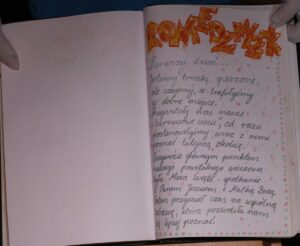 PONIEDZIAŁEK
Pierwszy dzień...
Jesteśmy troszkę speszone,
ale czujemy, że trafiłyśmy
w dobre miejsce.
Przywitały nas nasze
turnusowe ciocie, od razu
postanowiłyśmy wraz z nimi
poznać tutejszą okolicę.
Oczywiście głównym punktem
naszego powitalnego wieczoru
była Msza Święta - spotkanie
z Panem Jezusem i Matką Bożą.
Potem przyszedł czas na wspólną
zabawę, która pozwoliła nam
się lepiej poznać.